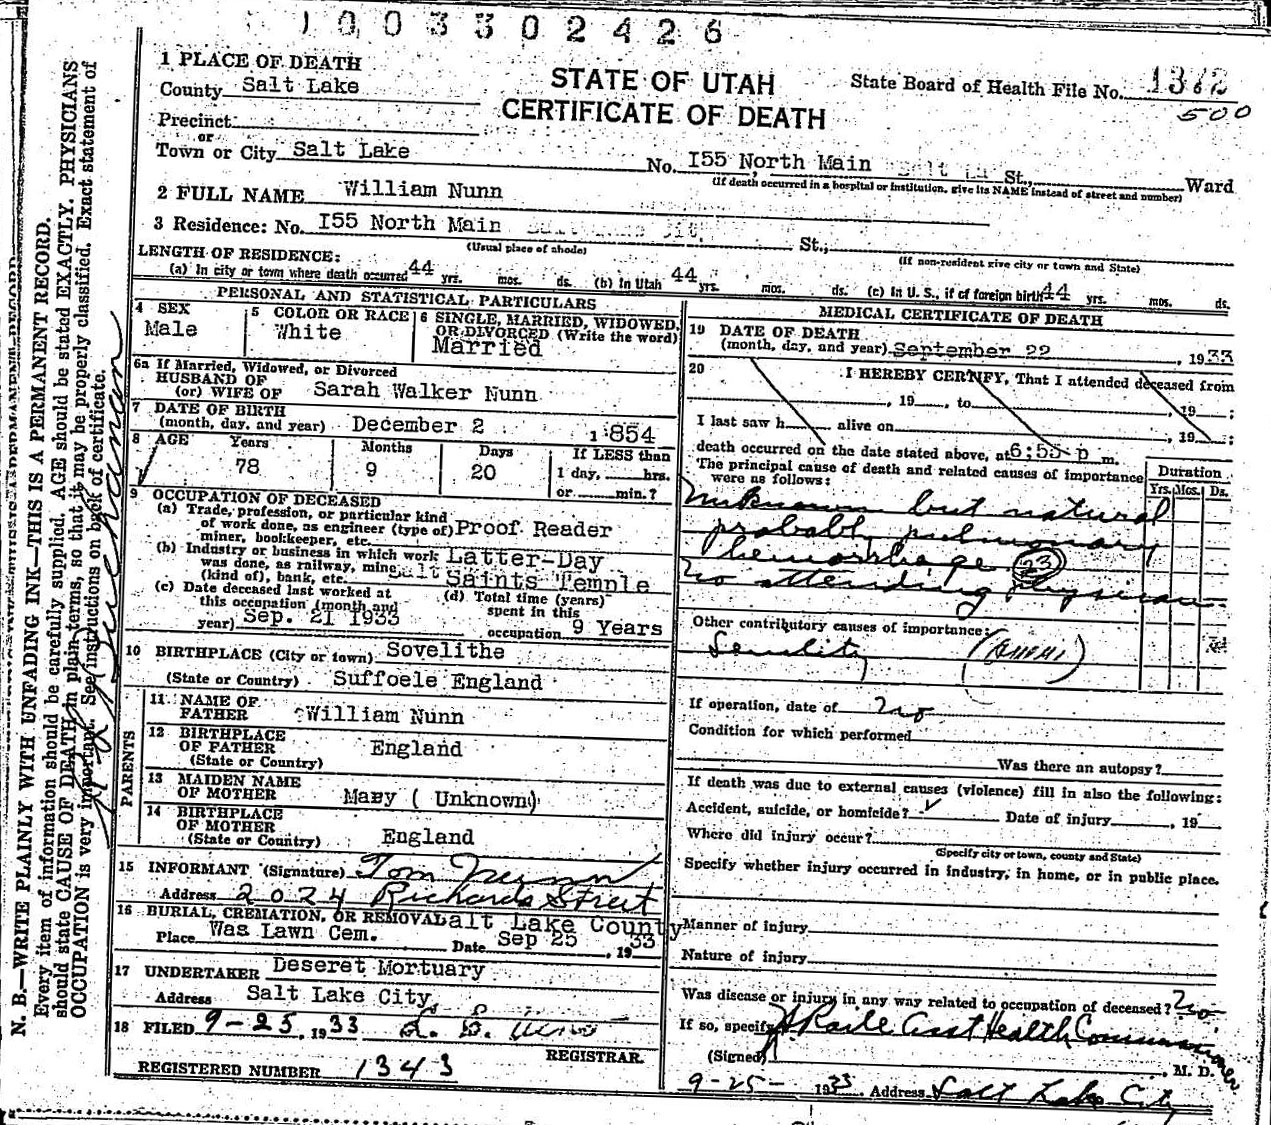 1003302426
1 PLACE OF DEATH
STATE OF UTAH
CERTIFICATE OF DEATH
State Board of Health File No. 1372
500
County Salt Lake
Precinct
or
Town or City Salt Lake No. I55 North Main St., Ward
(If death occurred in a hospital or institution, give its NAME instead of street and number)
2 FULL NAME William Nunn
3 Residence: No. I55 North Main St.,
(Usual place of abode) (If non-resident give city or town and State)
LENGTH OF RESIDENCE:
(a) In city or town where death occurred 44 yrs. mos. ds. (b) In Utah 44 yrs. mos. ds. (c) In U. S., if of foreign birth 44 yrs. mos. ds.
PERSONAL AND STATISTICAL PARTICULARS
4 SEX
Male
5 COLOR OR RACE
White
6 SINGLE, MARRIED, WIDOWED,
OR DIVORCED (Write the word)
Married
6a If Married, Widowed, or Divorced
HUSBAND OF
(or) WIFE OF Sarah Walker Nunn
7 DATE OF BIRTH
(month, day, and year) December 2 1854
8 AGE Years Months Days If LESS than
78 9 20 1 day, hrs.
or min.?
9 OCCUPATION OF DECEASED
(a) Trade, profession, or particular kind
of work done, as engineer (type of) Proof Reader
miner, bookkeeper, etc.
(b) Industry or business in which work Latter-Day
was done, as railway, mine Salt Saints Temple
(kind of), bank, etc.
(c) Date deceased last worked at
this occupation (month and
year) Sep. 21 1933
(d) Total time (years)
spent in this
occupation 9 Years
10 BIRTHPLACE (City or town) Sovelithe
(State or Country) Suffoele England
PARENTS
11 NAME OF
FATHER William Nunn
12 BIRTHPLACE
OF FATHER England
(State or Country)
13 MAIDEN NAME
OF MOTHER Mary ( Unknown)
14 BIRTHPLACE
OF MOTHER
(State or Country) England
15 INFORMANT (Signature) Tom Nunn
Address 2024 Richards Street
16 BURIAL, CREMATION, OR REMOVAL Salt Lake County
Place Was Lawn Cem. Date Sep 25, 1933
17 UNDERTAKER Deseret Mortuary
Address Salt Lake City
18 FILED 9-25, 1933
REGISTRAR.
REGISTERED NUMBER 1343
MEDICAL CERTIFICATE OF DEATH
19 DATE OF DEATH
(month, day, and year) September 22, 1933
20 I HEREBY CERTIFY, That I attended deceased from
, 19 , to , 19 ;
I last saw h alive on , 19 ;
death occurred on the date stated above, at 6:55 p m.
The principal cause of death and related causes of importance
were as follows:
Duration
Yrs. Mos. Ds.
Unknown but natural
probably pulmonary
hemorrhage 23
No attending physician
Other contributory causes of importance:
Senility
If operation, date of no
Condition for which performed
Was there an autopsy?
If death was due to external causes (violence) fill in also the following:
Accident, suicide, or homicide? Date of injury , 19
Where did injury occur?
(Specify city or town, county and State)
Specify whether injury occurred in industry, in home, or in public place.
Manner of injury
Nature of injury
Was disease or injury in any way related to occupation of deceased? No
If so, specify Asst Health Commissioner
(Signed) , M. D.
9-25- 1933 Address Salt Lake City
N. B.—WRITE PLAINLY WITH UNFADING INK—THIS IS A PERMANENT RECORD.
Every item of information should be carefully supplied. AGE should be stated EXACTLY. PHYSICIANS
should state CAUSE OF DEATH in plain terms, so that it may be properly classified. Exact statement of
OCCUPATION is very important. See instructions on back of certificate.